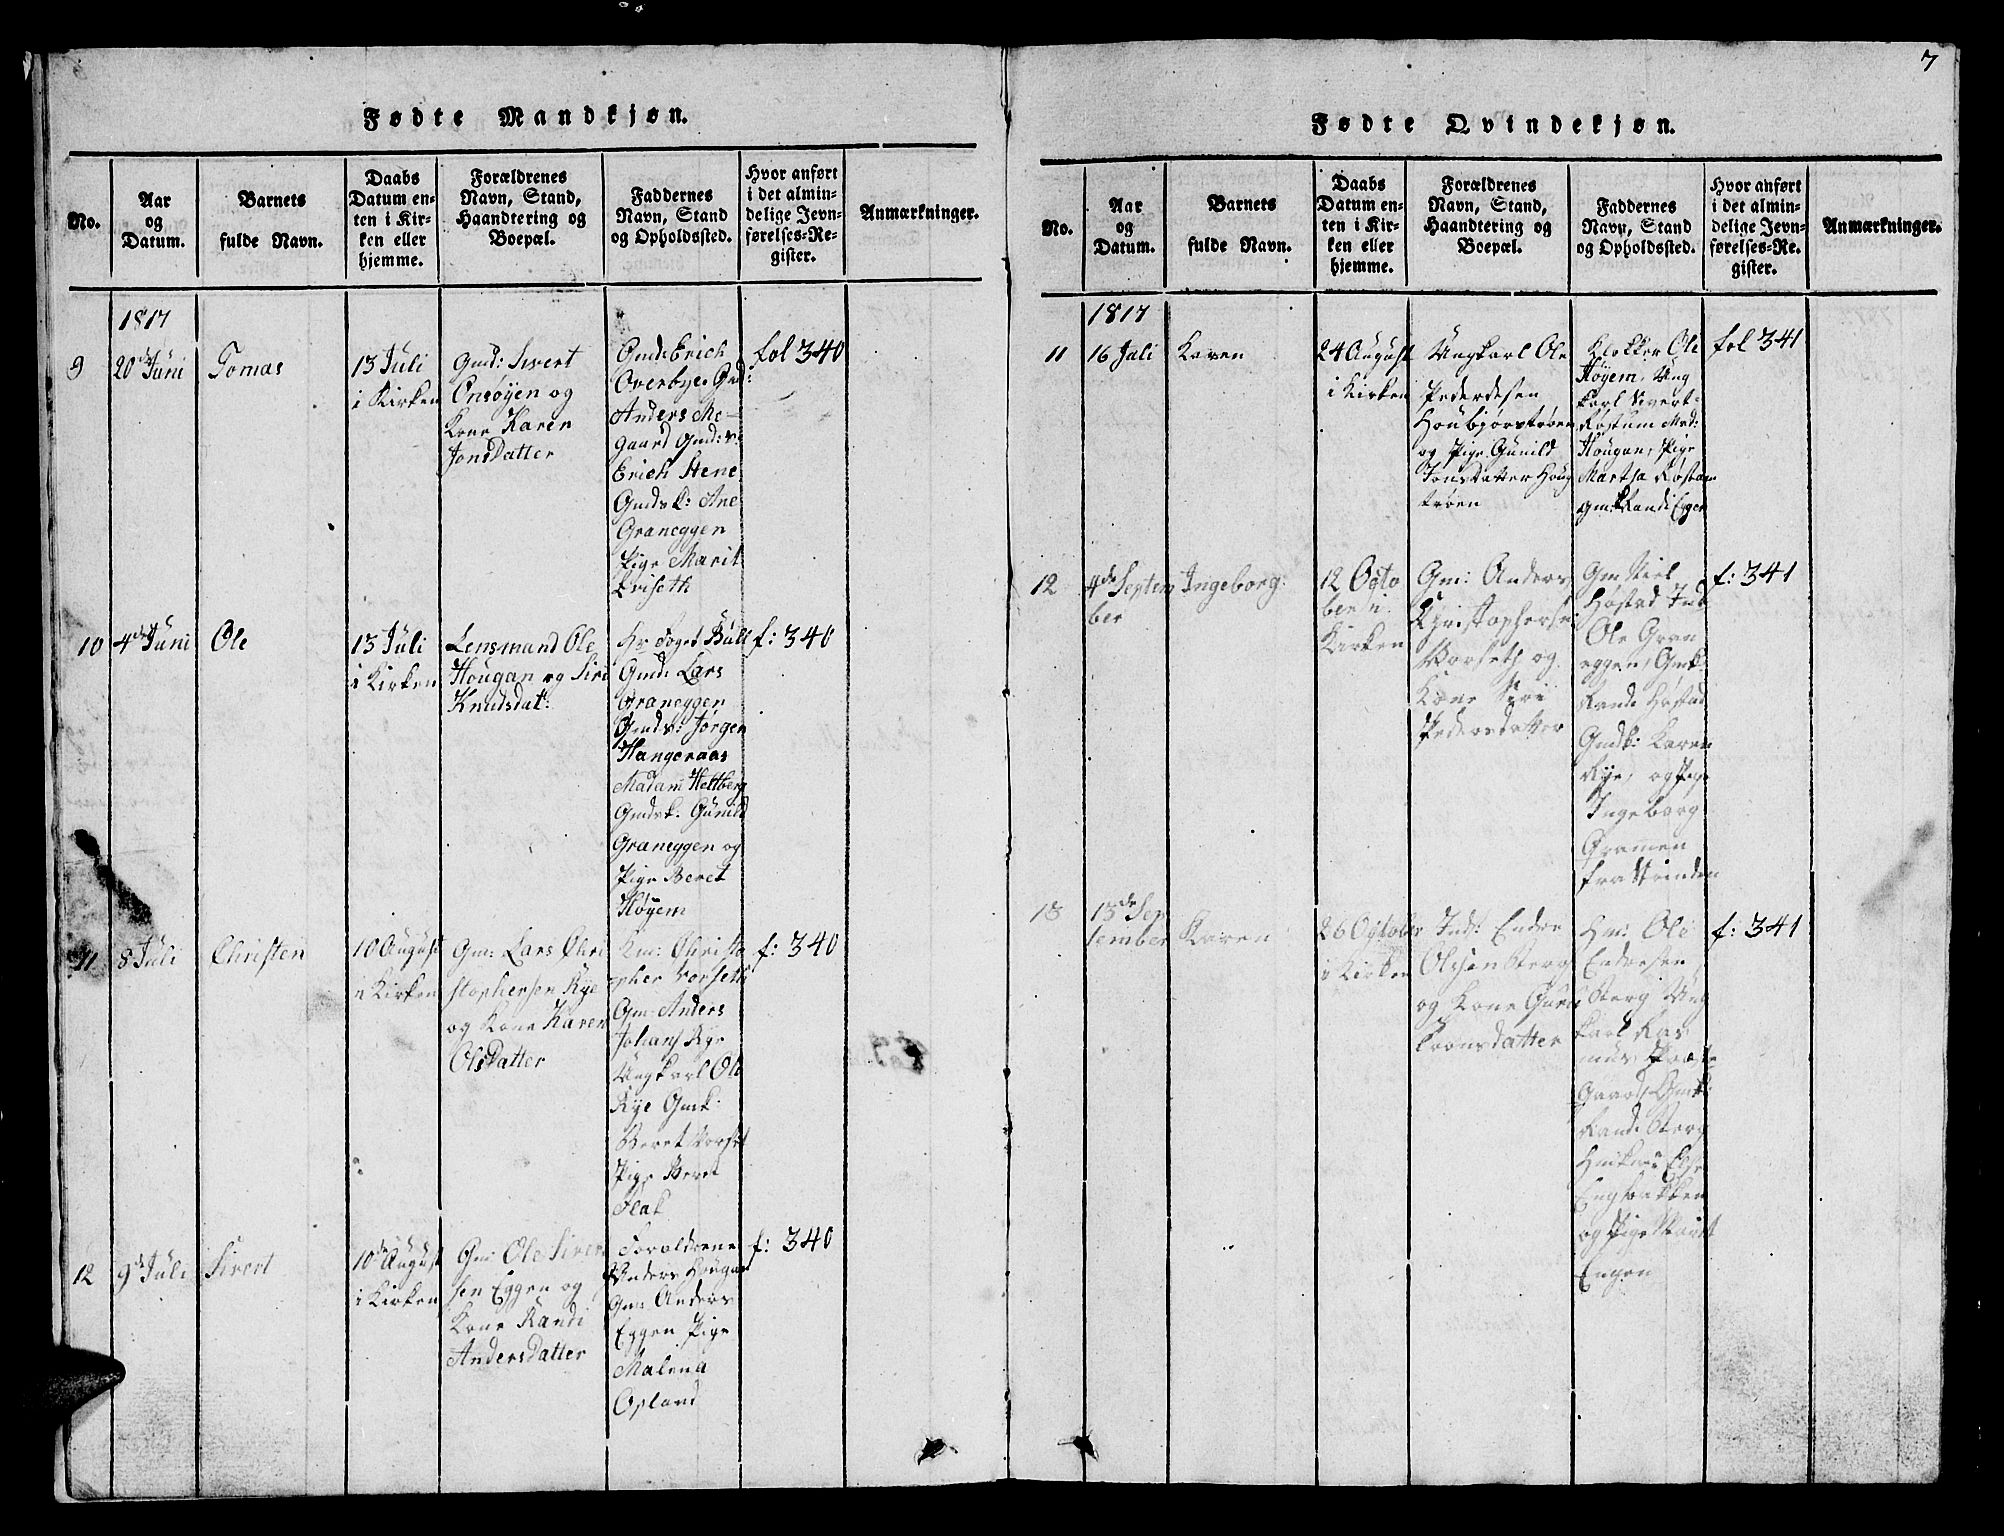 7
Fødte Mandkjøn.
No.
Aar
og
Datum.
Barnets
fulde Navn.
Daabs
Datum en-
ten i Kir-
ken eller
hjemme.
Forældrenes
Navn, Stand,
Haandtering og
Boepæl.
Faddernes
Navn, Stand
og Opholdssted.
Hvor anført
i det almin-
delige Jevn-
førelses-Re-
gister.
Anmærkninger.
1817
9
20de Juni
Tomas
13 Juli
i Kirken
Gmd: Sivert
Onsøyen og
Kone Karen
JonsDatter
Gmd: Erich
Overbye. Gmd:
Anders Me-
gaard Gmds:
Erich Stene
Gmdsk: Ane
Graneggen
Pige Marit
fol 340
10
4de Juni
Ole
13 Juli
i Kirken
Lensmand Ole
Hougan og Siri
Knudsdat:
Hr Foged Bull
Gmd: Lars
Graneggen
Gmds: Jørgen
Hangeraas
Madam Hettberg
Gmdsk. Gunild
Graneggen og
Pige Beret
Høyem
f: 340
11
8 Juli
Christen
10 August
i Kirken
Gm: Lars Chri
stophersen Rye
og Kone Karen
OlsDatter
Gm: Christo
pher Vorseth
Gm: Anders
Johans Rye
Ungkarl Ole
Rye Gmk:
Beret Vorset
Pige Beret
Flak
f: 340
12
9de Juli
Sivert
10de August
i Kirken
Gm: Ole Siver
sen Eggen og
Kone Randi
AndersDatter
Forældrene
Anders Hougan
Gm: Anders
Eggen Pige
Malena
Opland
f: 340
Fødte Qvindekjøn.
No.
Aar
og
Datum.
Barnets
fulde Navn.
Daabs
Datum en-
ten i Kir-
ken eller
hjemme.
Forældrenes
Navn, Stand,
Haandtering og
Boepæl.
Faddernes
Navn, Stand
og Opholdssted.
Hvor anført
i det almin-
delige Jevn-
førelses-Re-
gister.
Anmærkninger.
1817
11
16 Juli
Karen
24 August
i Kirken
Ungkarl Ole
Pedersen
Houbjørstrøen
og Pige Gunild
Jonsdatter Houg
trøen
Klokker Ole
Høyem, Ung
karl Sivert
Røstum Mad:
Hougan, Pige
Martha Røstum
gmk Randi Eggen
fol 341
12
4de Septem
ber
Ingeborg.
12 Octo
ber i
Kirken
Gm: Anders
Christophersen
Vorseth og
Kone Siri
Pedersdatter
Gm Niel
Høstad Ind
Ole Gran
eggen, Gmk:
Randi Høstad
Gmdk: Karen
Rye, og Pige
Ingeborg
Gramen
fra Strinden
f: 341
13
13de Sep
tember
Karen
26 October
i Kirken
Ind: Endre
Olsen Berg
og Kone Guru
Toorsdatter
Hm: Ole
Endresen
Berg Ung
karl Ras
mus Præste
Gaard, Gmk:
Randi Berg
Else
og Pige Marit
Engen
f: 341